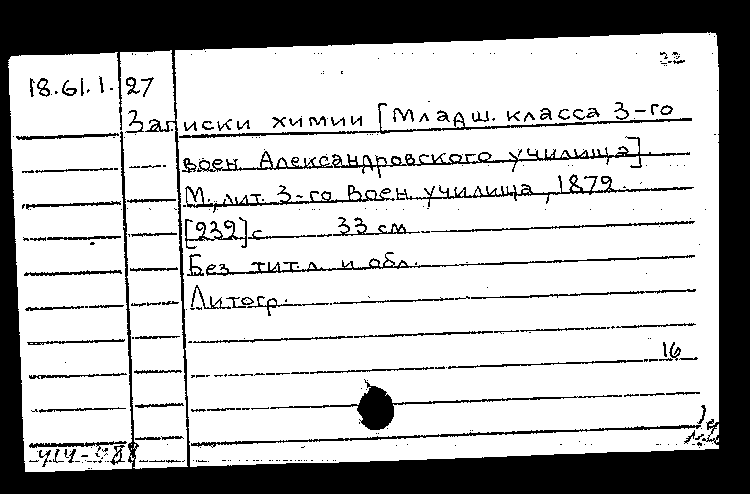 22
18.61.1. 27
Записки химии [Младш. класса 3-го
воен. Александровского училища].
М., лит. 3-го Воен. училища, 1879.
[232] с 33 см
Без тит. л и обл.
Литогр.
16